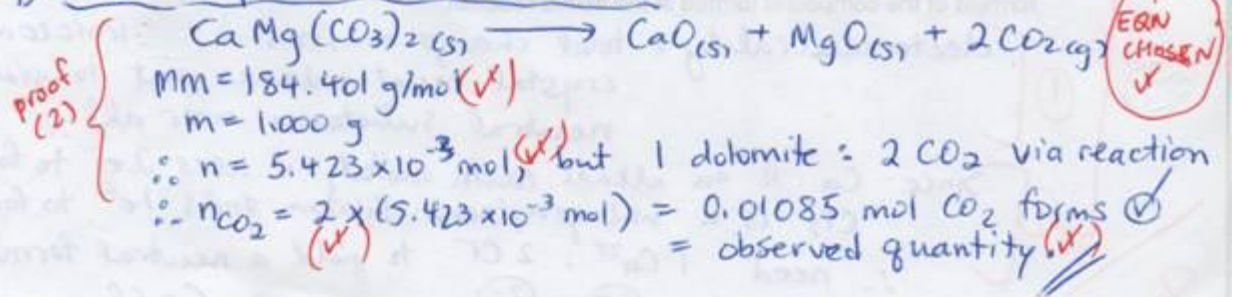 CaMg(CO3)2(s) → CaO(s) + MgO(s) + 2CO2(g)
EQN CHOSEN ✓
proof (2)
Mm = 184.401 g/mol (✓)
m = 1.000 g
∴ n = 5.423 x 10^-3 mol, (✓) but 1 dolomite : 2 CO2 via reaction
∴ nCO2 = 2 x (5.423 x 10^-3 mol) = 0.01085 mol CO2 forms ✓
(✓)
= observed quantity. (✓)